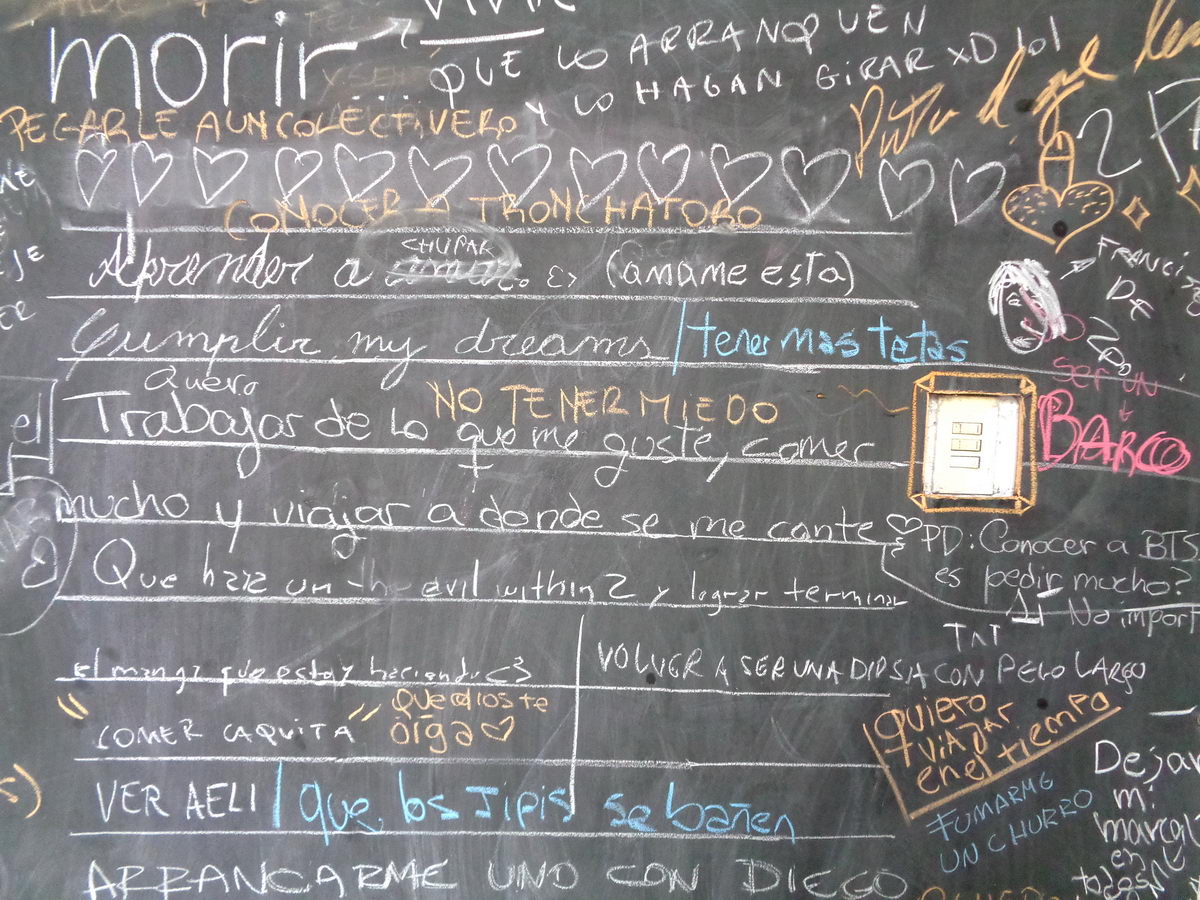 VIVIR
morir ... QUE LO ARRANQUEN
Y LO HAGAN GIRAR XD lol
PEGARLE A UN COLECTIVERO
Puto el que lea
CONOCER A TRONCHATORO
Aprender a CHUPAR (amame esta)
Cumplir my dreams / tener mas tetas
Quero
NO TENER MIEDO
Trabajar de lo que me guste, comer
SER UN
BARCO
mucho y viajar a donde se me cante
PD: Conocer a BTS
es pedir mucho?
No import
TNT
Que haya un the evil within 2 y lograr terminar
el manga que estoy haciendo <3
VOLVER A SER UNA DIOSA CON PELO LARGO
"COMER CAQUITA"
Que dios te
oiga
quiero
viajar
en el tiempo
VER A ELI / que los Jipis se bañen
FUMARME
UN CHURRO
Dejar
mi
marca
en
todos
ARRANCARME UNO CON DIEGO